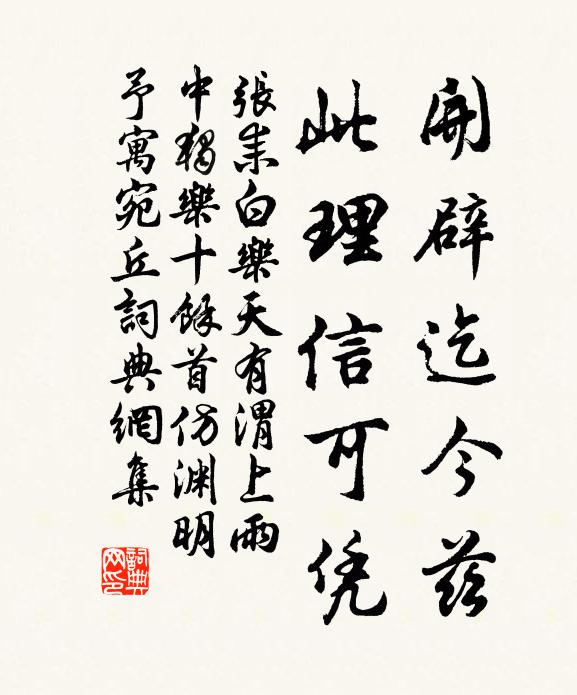 開辟迄今茲
此理信可凭
張耒白樂天有渭上雨
中獨樂十餘首仿淵明
予寓宛丘詞典網集
詞典網印